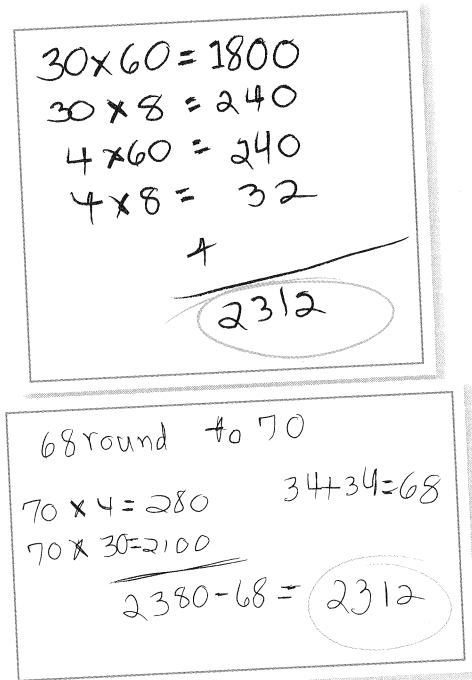 30×60=1800
30×8=240
4×60=240
4×8=32
+
2312
68 round to 70
70×4=280
34+34=68
70×30=2100
2380-68=2312